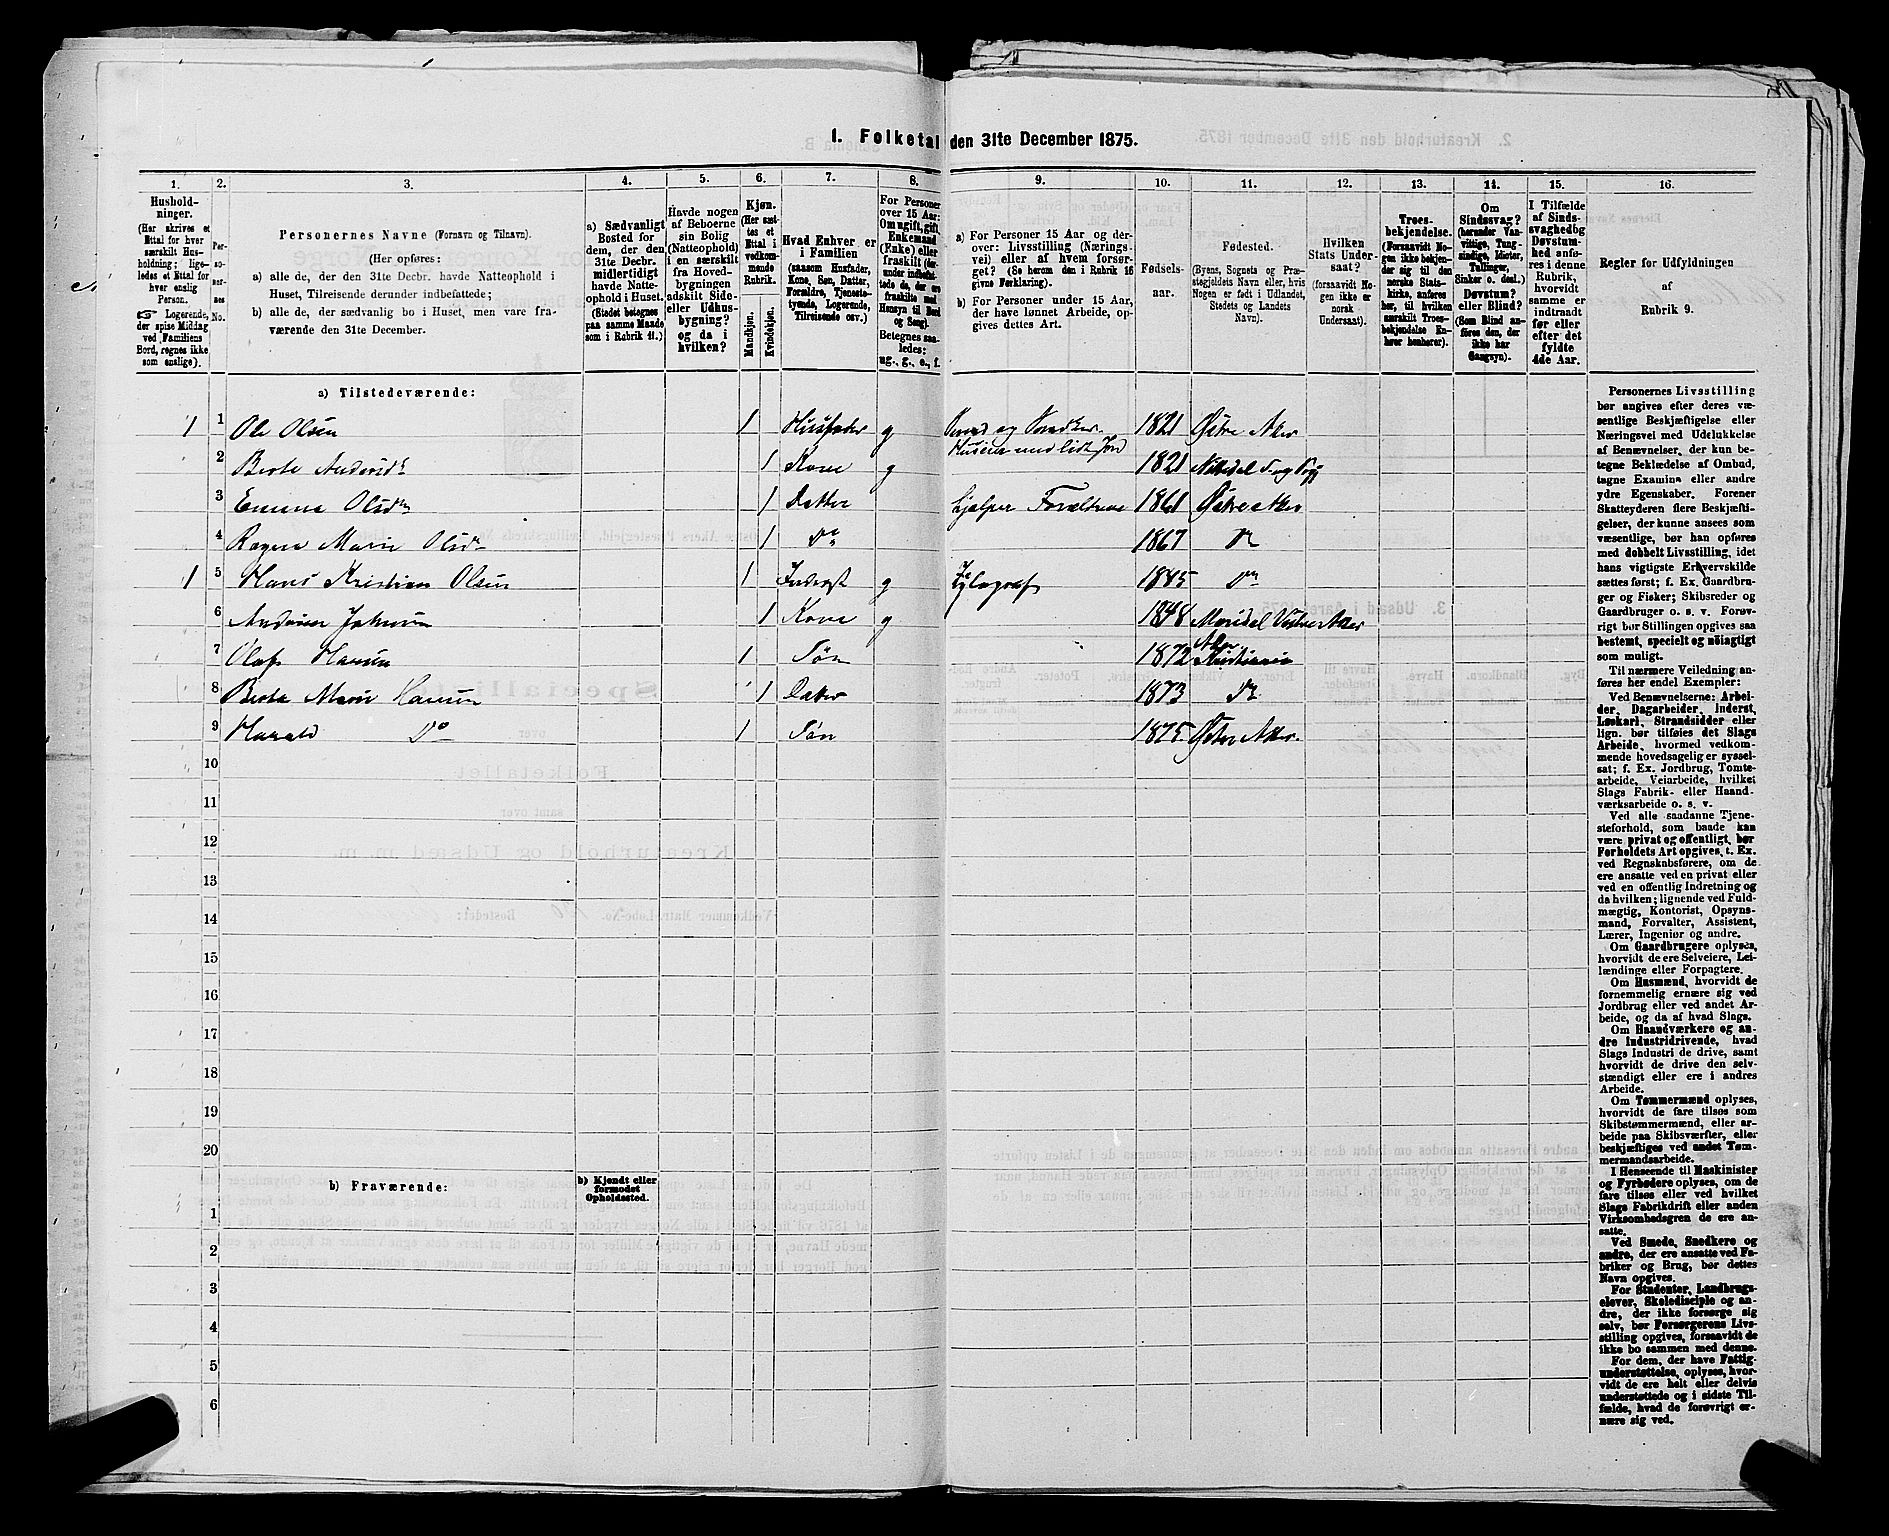 1. Folketal den 31te December 1875.
1. 2. 3. 4. 5. 6. 7. 8. 9. 10. 11. 12. 13. 14. 15. 16.
Hushold-
ninger.
(Her skrives et
Ettal for hver
særskilt Hus-
holdning; lige-
ledes et Ettal for
hver enslig
Person.
☞ Logerende,
der spise Middag
ved Familiens
Bord, regnes ikke
som enslige).
Per-
so-
ner-
nes
No.
Personernes Navne (Fornavn og Tilnavn).
(Her opføres:
a) alle de, der den 31te Decbr. havde Natteophold i
Huset, Tilreisende derunder indbefattede;
b) alle de, der sædvanlig bo i Huset, men vare fra-
værende den 31te December.
a) Sædvanligt
Bosted for
dem, der den
31te Decbr.
midlertidigt
havde Natte-
ophold i Huset.
(Stedet betegnes
paa samme Maade
som i Rubrik 11.)
Havde nogen
af Beboerne
sin Bolig
(Natteophold)
i en særskilt
fra Hoved-
bygningen
adskilt Side-
eller Udhus-
bygning?
og da i
hvilken?
Kjøn.
(Her sæt-
tes et
Ettal i
vedkom-
mende
Rubrik.
Mandkjøn.
Kvindekjøn.
Hvad Enhver er
i Familien
(saasom Husfader,
Kone, Søn, Datter,
Forældre, Tjeneste-
tyende, Logerende,
Tilreisende osv.)
For Personer
over 15 Aar:
Om ugift, gift,
Enkemand
(Enke) eller
fraskilt (der-
under indbefat-
tede de, der ere
fraskilte med
Hensyn til Bord
og Seng).
Betegnes saa-
ledes:
ug., g., e., f.
a) For Personer 15 Aar og der-
over: Livsstilling (Nærings-
vei) eller af hvem forsør-
get? (Se herom den i Rubrik 16
givne Forklaring).
b) For Personer under 15 Aar,
der have lønnet Arbeide, op-
gives dettes Art.
Fødsels-
aar.
Fødested.
(Byens, Sognets og Præ-
stegjeldets Navn eller, hvis
Nogen er født i Udlandet,
Stedets og Landets
Navn).
Hvilken
Stats Under-
saat?
(forsaavidt No-
gen ikke er
norsk
Undersaat).
Troes-
bekjendelse.
(Forsaavidt No-
gen ikke bekjen-
der sig til den
norske Stats-
kirke, anføres
her, til hvilken
særskilt Troes-
bekjendelse En-
hver henhører).
Om
Sindssvag?
(herunder Van-
vittige, Tung-
sindige, Idioter,
Tullinger,
Sinker o. desl.)
Døvstum?
eller Blind?
(Som Blind an-
føres den, der
ikke har
Gangsyn).
I Tilfælde
af Sinds-
svaghed og
Døvstum-
hed anfø-
res i denne
Rubrik,
hvorvidt
samme er
indtraadt
før eller
efter det
fyldte
4de Aar.
Regler for Udfyldningen
af
Rubrik 9.
a) Tilstedeværende:
1 1 Ole Olsen 1 Husfader g Smed og Snedker. Huseier med lidt Jord 1821 Østre Aker
2 Berte Andersd 1 Kone g 1821 Nittedal S. og Prgj
3 Emma Olsdtr 1 Datter hjælper Forældrene 1861 Østre Aker
4 Ragna Marie Olsdr 1 Do 1867 Do
1 5 Hans Kristian Olsen 1 Inderst g Xylograf 1845 Do
6 1 Kone g 1848 Maridal Vestre Aker
7 Olaf Hansen 1 Søn 1872 Aker Kristiania
8 Berta Marie Hansen 1 Datter 1873 Do
9 Harald Do 1 Søn 1875. Østre Aker.
10
11
12
13
14
15
16
17
18
19
20
b) Fraværende:
b) Kjendt eller
formodet
Opholdssted.
1
2
3
4
5
6
Personernes Livsstilling
bør angives efter deres væ-
sentlige Beskjæftigelse eller
Næringsvei med Udelukkelse
af Benævnelser, der kun be-
tegne Beklædelse af Ombud,
tagne Examina eller andre
ydre Egenskaber. Forener
Skatteyderen flere Beskjæfti-
gelser, der kunne ansees som
væsentlige, bør han opføres
med dobbelt Livsstilling, idet
hans vigtigste Erhvervskilde
sættes først; f. Ex. Gaardbru-
ger og Fisker; Skibsreder og
Gaardbruger o. s. v. Forøv-
rigt bør Stillingen opgives saa
bestemt, specielt og nøiagtigt
som muligt.
Til nærmere Veiledning an-
føres her endel Exempler:
Ved Benævnelserne: Arbei-
der, Dagarbeider, Inderst,
Løskarl, Strandsidder eller
lign. bør tilføies det Slags
Arbeide, hvormed vedkom-
mende hovedsagelig er syssel-
sat; f. Ex. Jordbrug, Tomte-
arbeide, Veiarbeide, hvilket
Slags Fabrik- eller Haand-
værksarbeide o. s. v.
Ved alle saadanne Tjene-
steforhold, som baade kan
være privat og offentligt, bør
Forholdets Art opgives, t. Ex.
ved Regnskabsførere, om de
ere ansatte ved en privat eller
ved en offentlig Indretning og
da hvilken; lignende ved Fuld-
mægtig, Kontorist, Opsyns-
mand, Forvalter, Assistent,
Lærer, Ingeniør og andre.
Om Gaardbrugere oplyses,
hvorvidt de ere Selveiere, Lei-
lændinge eller Forpagtere.
Om Husmænd, hvorvidt de
fornemmelig ernære sig ved
Jordbrug eller ved andet Ar-
beide, og da af hvad Slags.
Om Haandværkere og an-
dre Industridrivende, hvad
Slags Industri de drive, samt
hvorvidt de drive den selv-
stændigt eller ere i andres
Arbeide.
Om Tømmermænd oplyses,
hvorvidt de fare tilsøs som
Skibstømmermænd, eller ar-
beide paa Skibsværfter, eller
beskjæftiges ved andet Tøm-
mermandsarbeide.
I Henseende til Maskinister
og Fyrbødere oplyses, om de
fare tilsøs eller ved hvilket
Slags Fabrikdrift eller anden
Virksomhedsgren de ere an-
satte.
Ved Smede, Snedkere og
andre, der ere ansatte ved Fa-
briker og Brug, bør dettes
Navn opgives.
For Studenter, Landbrugs-
elever, Skoledisciple og an-
dre, der ikke forsørge sig
selv, bør Forsørgerens Livs-
stilling opgives, forsaavidt de
ikke bo sammen med denne.
For dem, der have Fattig-
understøttelse, oplyses, hvor-
vidt de ere helt eller delvis
understøttede og i sidste Til-
fælde, hvad de forøvrigt er-
nære sig ved.